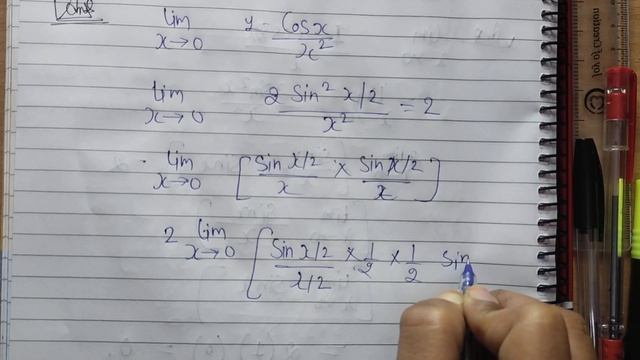 lim x→0 y - Cosx / x²
lim x→0 2 Sin² x/2 / x² = 2
lim x→0 [ Sin x/2 / x × Sin x/2 / x ]
2 lim x→0 [ Sin x/2 / x/2 × 1/2 × 1/2 Sin